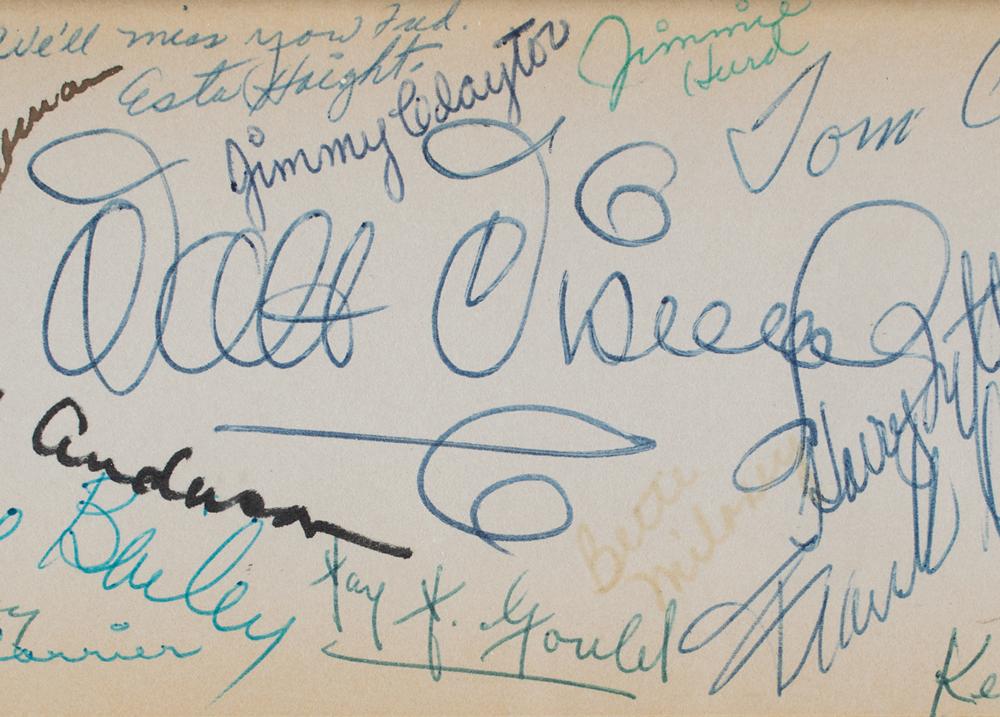 We'll miss you Fred.
Esta Haight.
Jimmy Clayton
Jimmie
Hurd
Tom
Walt Disney
Anderson
Harry
Bailey
Bette
Kay F. Gould
Frank
Carrier
Ke